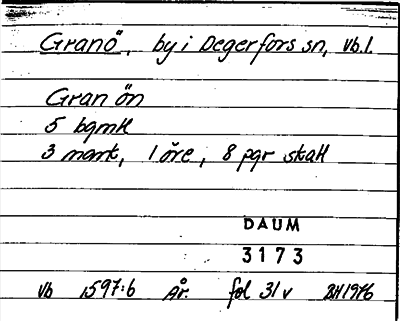 Granö, by i Degerfors sn, Vb.l.
Granön
5 bgmk
3 mark, 1 öre, 8 pgr skatt
DAUM
3173
Vb 1597:6 År. fol 31v BH1976